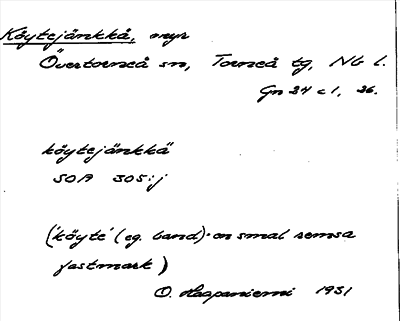 Köytejänkkä, myr
Övertorneå sn, Torneå tg, NB l.
Gn 24 c 1, 36.
köytejänkkä
SOA 305:j
('köyte' (eg. band) - en smal remsa
fastmark)
O. Haapaniemi 1931